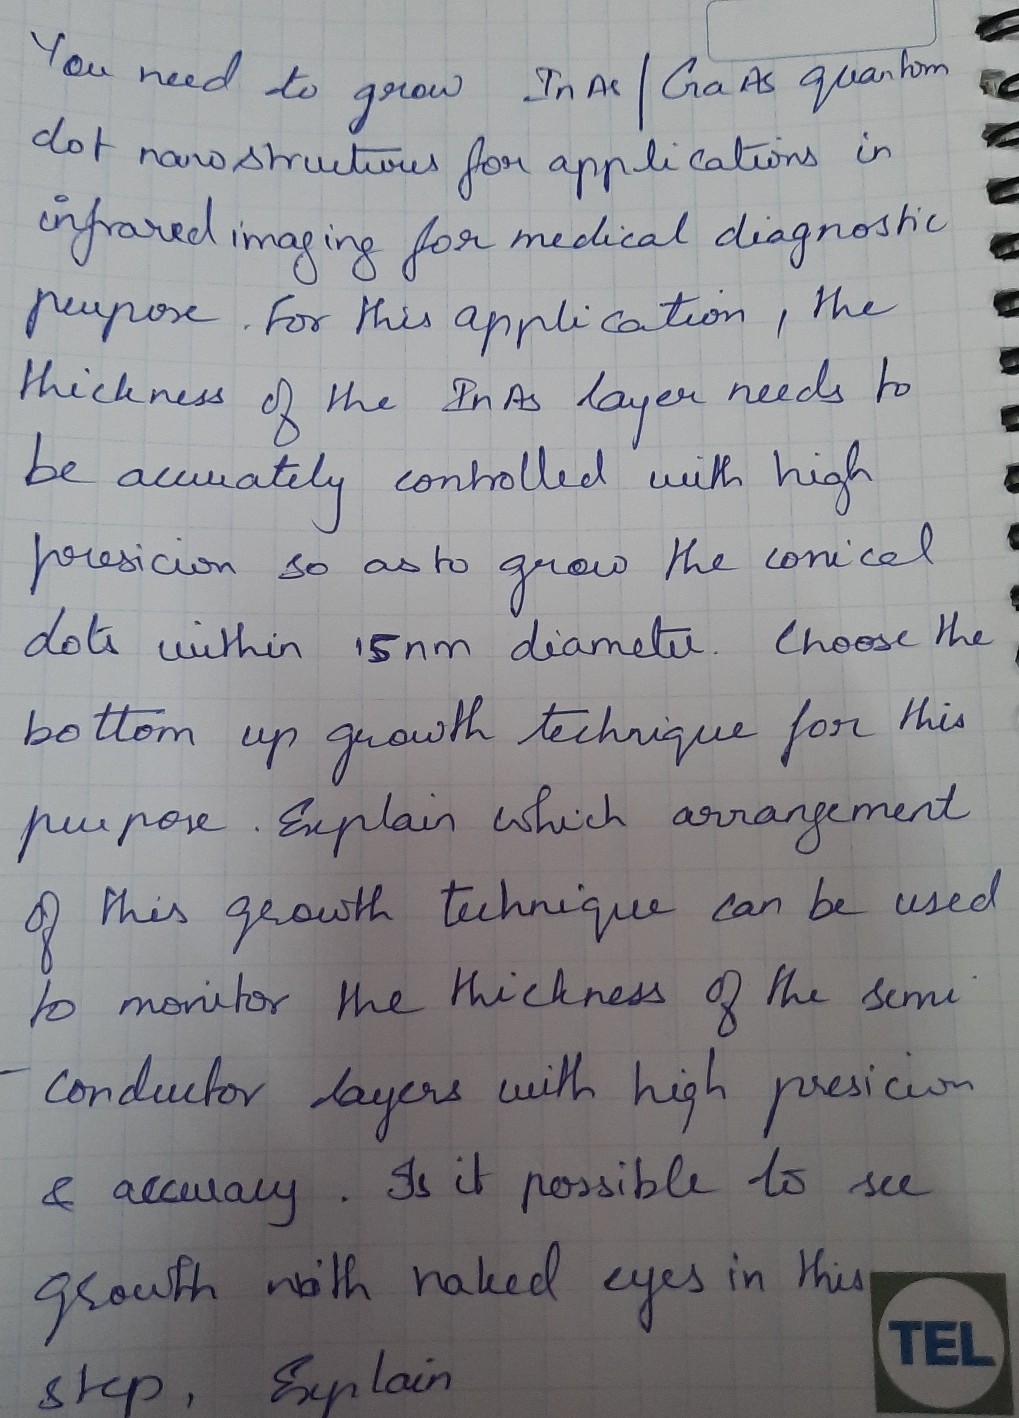 You need to grow InAs/GaAs quantom
dot nanostructures for applications in
infrared imaging for medical diagnostic
purpose. For this application, the
thickness of the InAs layer needs to
be accurately controlled with high
presicion so as to grow the conical
dots within 15nm diameter. Choose the
bottom up growth technique for this
purpose. Explain which arrangement
of this growth technique can be used
to monitor the thickness of the semi
-conductor layers with high presicion
& accuracy. Is it possible to see
growth with naked eyes in this
step, Explain
TEL